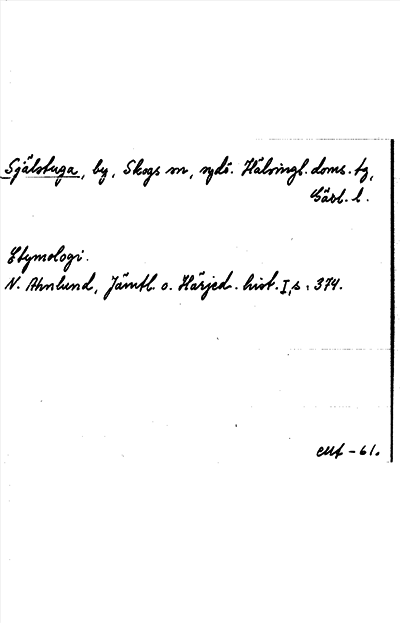 Själstuga, by, Skogs sn, sydö. Hälsingl. doms. tg,
Gävl. l.
Etymologi.
N. Ahnlund, Jämtl. o. Härjed. hist. I, s. 374.
-61.